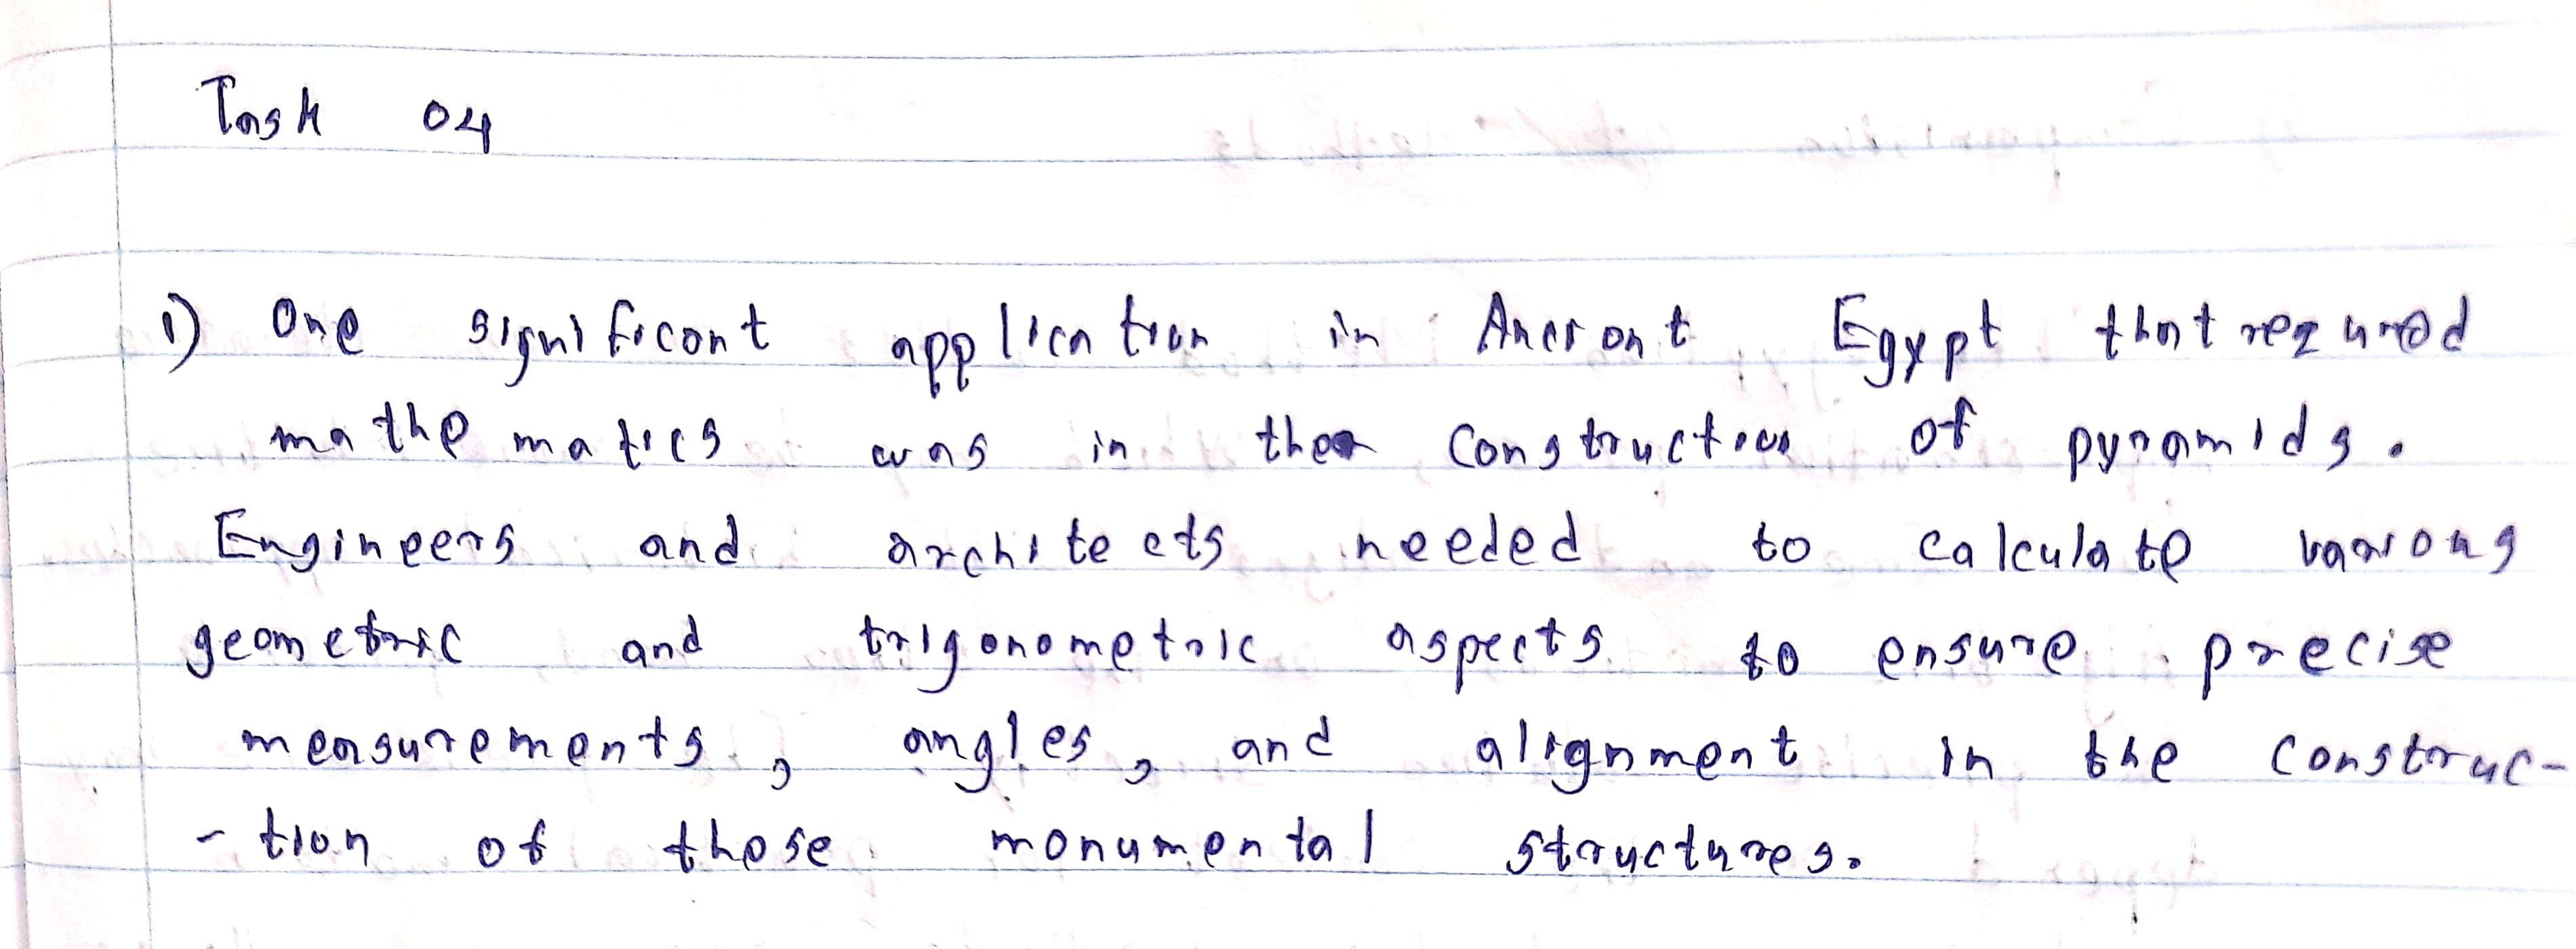 Task 04
1) One significant application in Ancient Egypt that required
mathematics was in the construction of pyramids.
Engineers and architects needed to calculate various
geometric and trigonometric aspects to ensure precise
measurements, angles, and alignment in the construc-
-tion of these monumental structures.